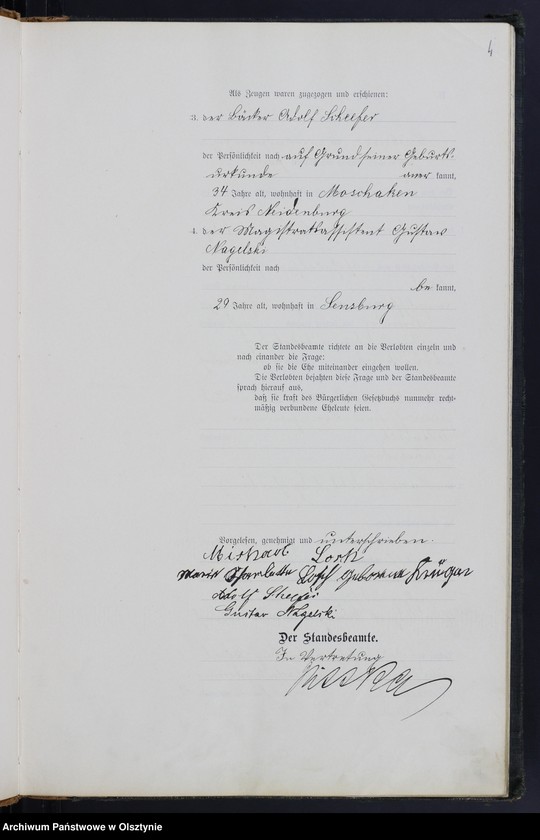 4
Als Zeugen waren zugezogen und erschienen:
3. der Bäcker Adolf Scheefer
der Persönlichkeit nach auf Grund seiner Geburts-
urkunde aner kannt,
34 Jahre alt, wohnhaft in Moschaken
Kreis Neidenburg
4. der Magistratsassistent Gustav
Nagelski
der Persönlichkeit nach
be kannt,
29 Jahre alt, wohnhaft in Sensburg
Der Standesbeamte richtete an die Verlobten einzeln und
nach einander die Frage:
ob sie die Ehe miteinander eingehen wollen.
Die Verlobten bejahten diese Frage und der Standesbeamte
sprach hierauf aus,
daß sie kraft des Bürgerlichen Gesetzbuchs nunmehr recht-
mäßig verbundene Eheleute seien.
Vorgelesen, genehmigt und unterschrieben.
Michael
Marie Charlotte geborene Krüger
Adolf Scheefer
Gustav Nagelski
Der Standesbeamte.
In Vertretung
Archiwum Państwowe w Olsztynie